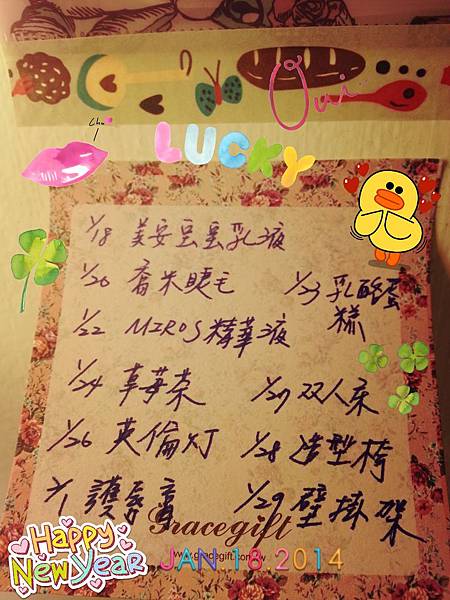 Oui
LUCKY
1/18 美安豆豆乳液
1/20 喬米睫毛
1/23 乳酪蛋糕
1/22 MIROS精華液
1/24 草莓茶
1/27 双人床
1/26 英倫灯
1/28 造型椅
2/1 護唇膏
1/29 壁掛架
Gracegift
www.gracegift.com.tw
JAN.18.2014
Happy
New Year